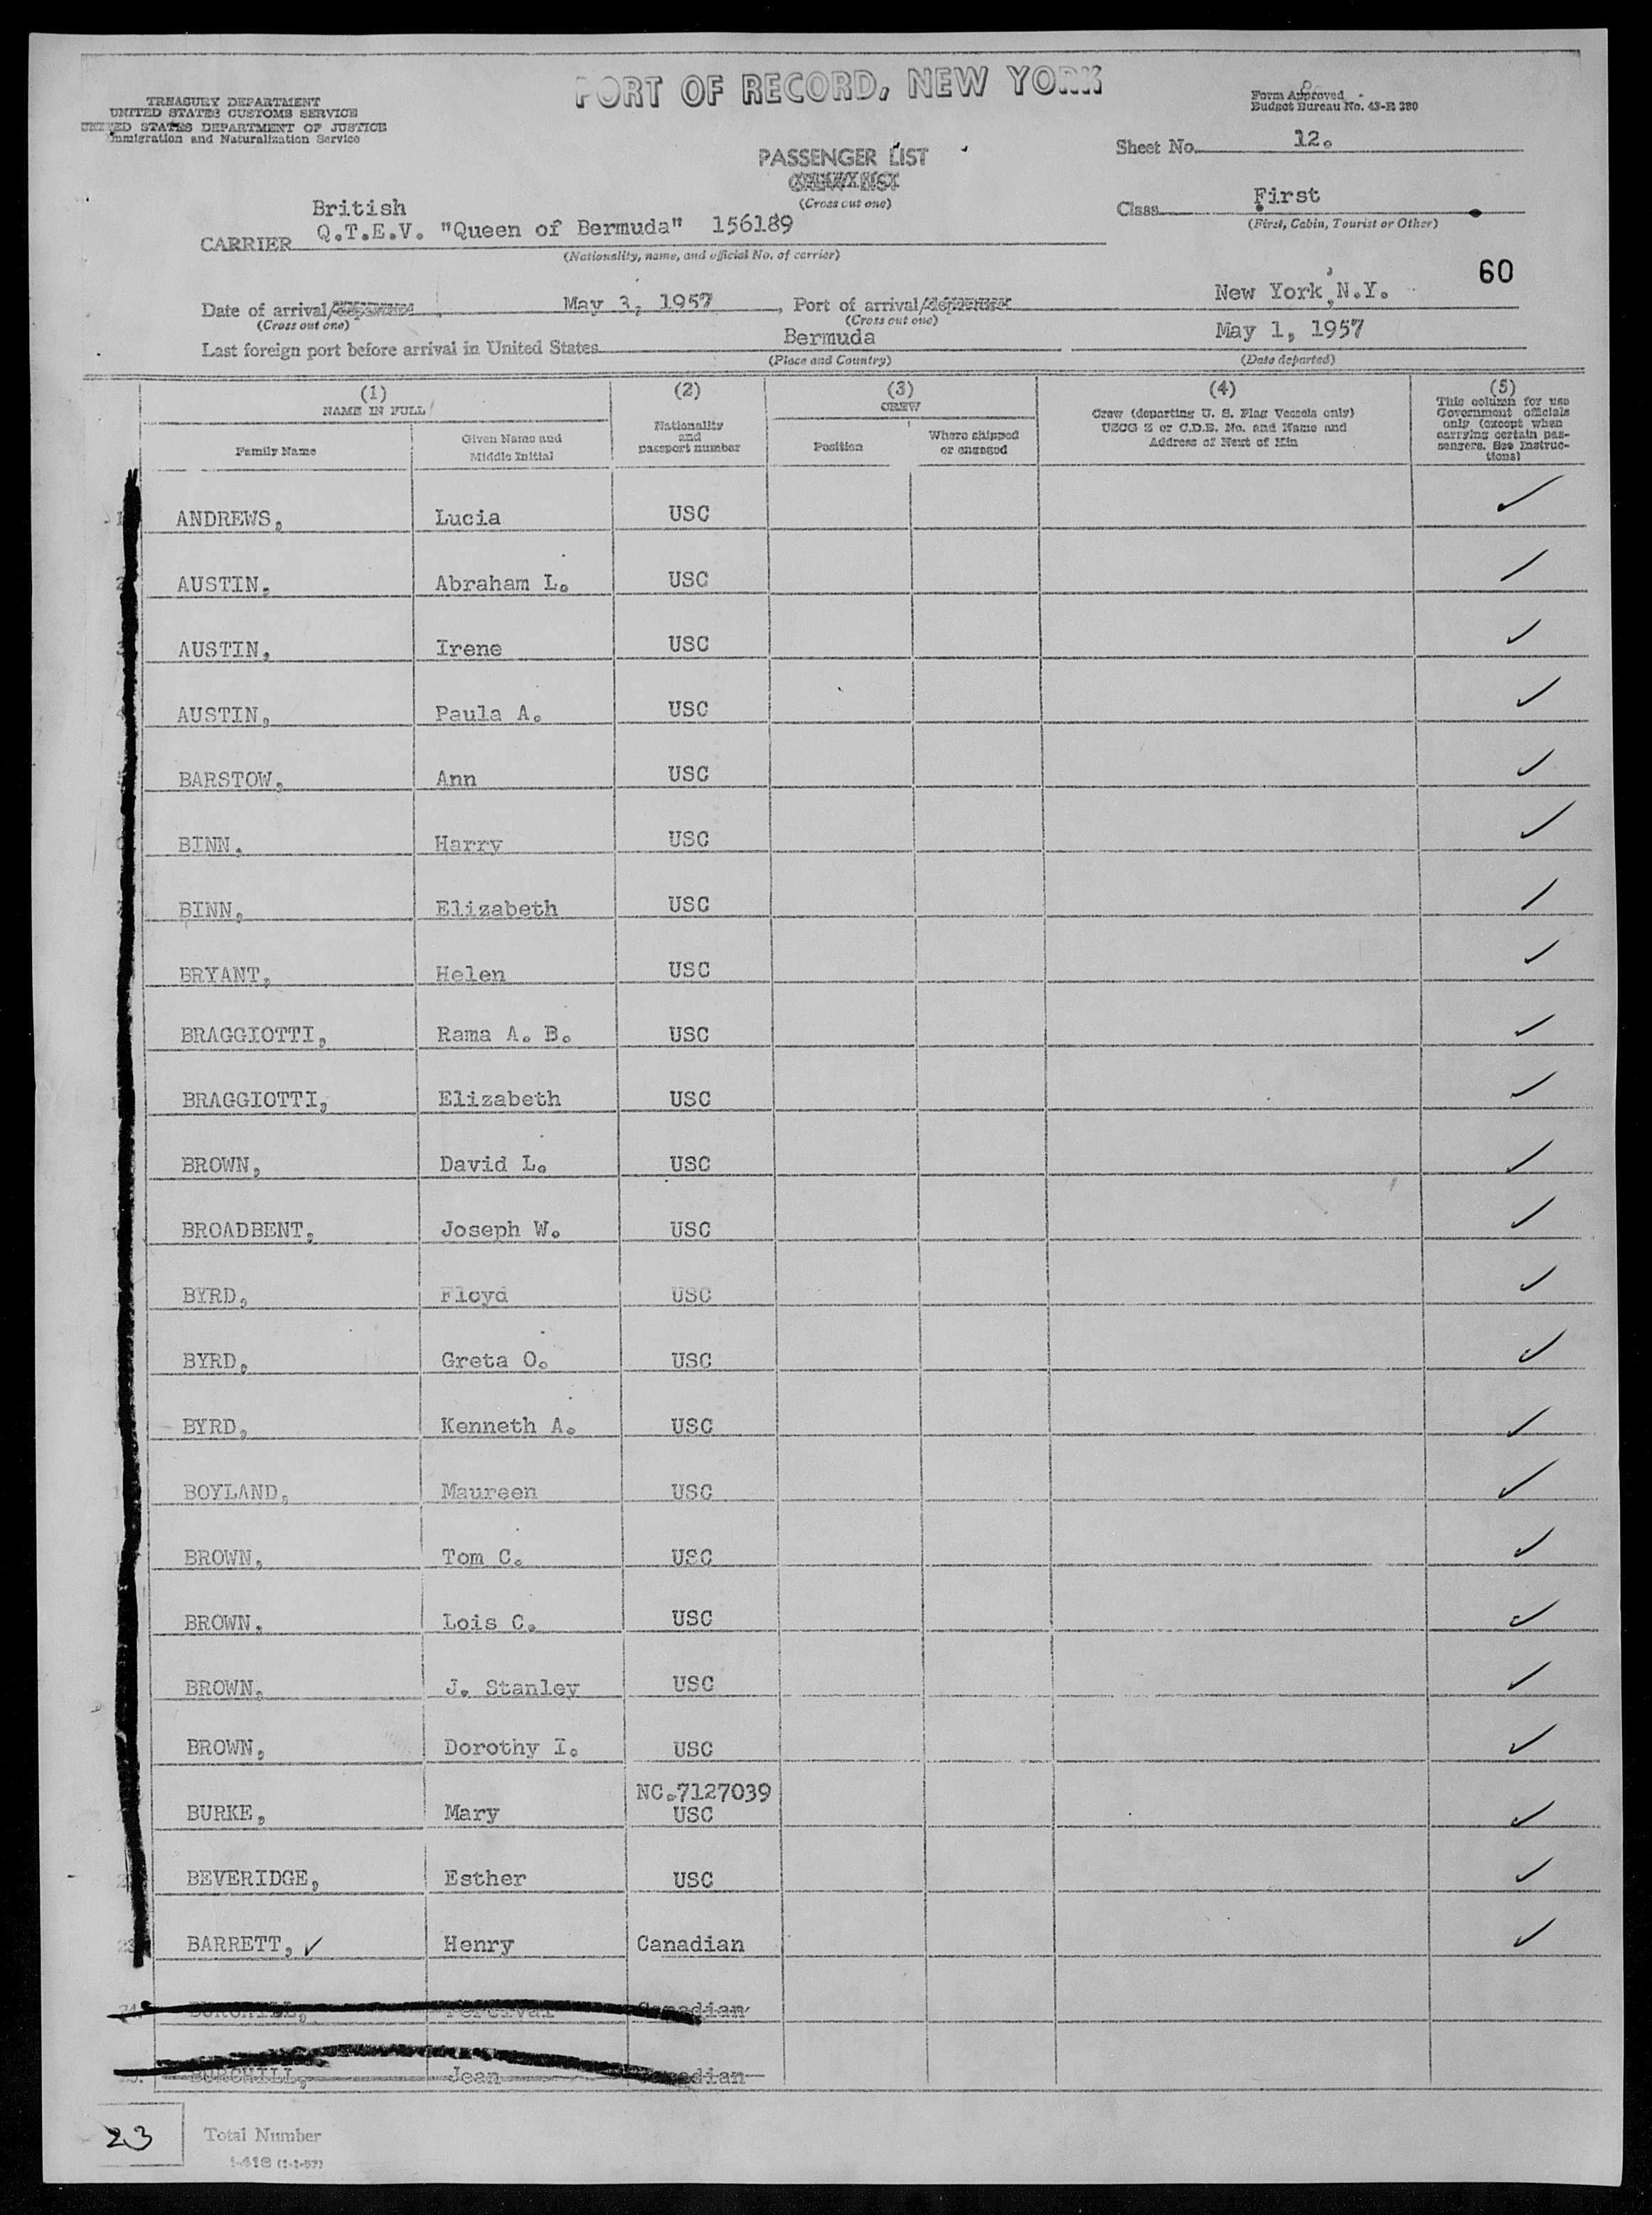 PORT OF RECORD, NEW YORK
TREASURY DEPARTMENT
UNITED STATES CUSTOMS SERVICE
UNITED STATES DEPARTMENT OF JUSTICE
Immigration and Naturalization Service
Form Approved
Budget Bureau No. 43-R 380
Sheet No. 12.
PASSENGER LIST
CREW LIST
(Cross out one)
Class First
(First, Cabin, Tourist or Other)
British
CARRIER Q.T.E.V. "Queen of Bermuda" 156189
(Nationality, name, and official No. of carrier)
60
Date of arrival/departure May 3, 1957, Port of arrival/departure New York, N.Y.
(Cross out one) (Cross out one)
Last foreign port before arrival in United States Bermuda May 1, 1957
(Place and Country) (Date departed)
(1) (2) (3) (4) (5)
NAME IN FULL
Family Name
Given Name and Middle Initial
Nationality and passport number
CREW
Position
Where shipped or engaged
Crew (departing U. S. Flag Vessels only)
USCG Z or C.D.B. No. and Name and
Address of Next of Kin
This column for use
Government officials
only (except when
carrying certain pas-
sengers. See Instruc-
tions)
ANDREWS, Lucia USC ✓
AUSTIN, Abraham L. USC ✓
AUSTIN, Irene USC ✓
AUSTIN, Paula A. USC ✓
BARSTOW, Ann USC ✓
BINN, Harry USC ✓
BINN, Elizabeth USC ✓
BRYANT, Helen USC ✓
BRAGGIOTTI, Rama A. B. USC ✓
BRAGGIOTTI, Elizabeth USC ✓
BROWN, David L. USC ✓
BROADBENT, Joseph W. USC ✓
BYRD, Floyd USC ✓
BYRD, Greta O. USC ✓
BYRD, Kenneth A. USC ✓
BOYLAND, Maureen USC ✓
BROWN, Tom C. USC ✓
BROWN, Lois C. USC ✓
BROWN, J. Stanley USC ✓
BROWN, Dorothy I. USC ✓
NC.7127039
BURKE, Mary USC ✓
BEVERIDGE, Esther USC ✓
BARRETT, ✓ Henry Canadian ✓
24. BURCHILL, Percival Canadian
25. BURCHILL, Jean Canadian
23 Total Number
I-418 (1-1-57)